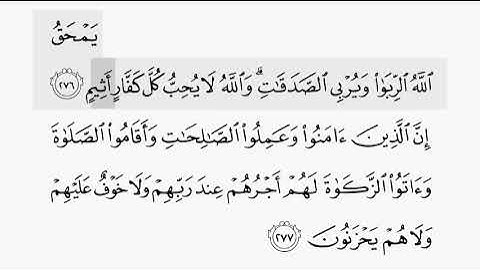 يَمْحَقُ
ٱللَّهُ ٱلرِّبَوٰا۟ وَيُرْبِى ٱلصَّدَقَـٰتِ ۗ وَٱللَّهُ لَا يُحِبُّ كُلَّ كَفَّارٍ أَثِيمٍ ٢٧٦
إِنَّ ٱلَّذِينَ ءَامَنُوا۟ وَعَمِلُوا۟ ٱلصَّـٰلِحَـٰتِ وَأَقَامُوا۟ ٱلصَّلَوٰةَ
وَءَاتَوُا۟ ٱلزَّكَوٰةَ لَهُمْ أَجْرُهُمْ عِندَ رَبِّهِمْ وَلَا خَوْفٌ عَلَيْهِمْ
وَلَا هُمْ يَحْزَنُونَ ٢٧٧